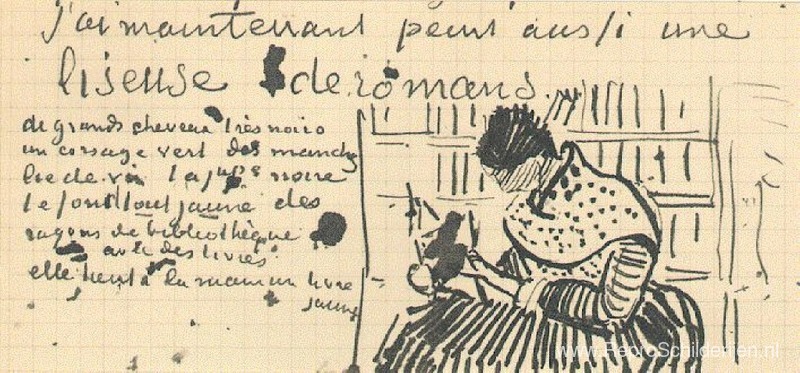 j'ai maintenant peint aussi une
liseuse de romans.
de grands cheveux très noirs
un corsage vert des manches
lie de vin la jupe noire
le fond tout jaune des
rayons de bibliothèque
avec des livres
elle tient à la main un livre
jaune
www.ReproSchilderijen.nl